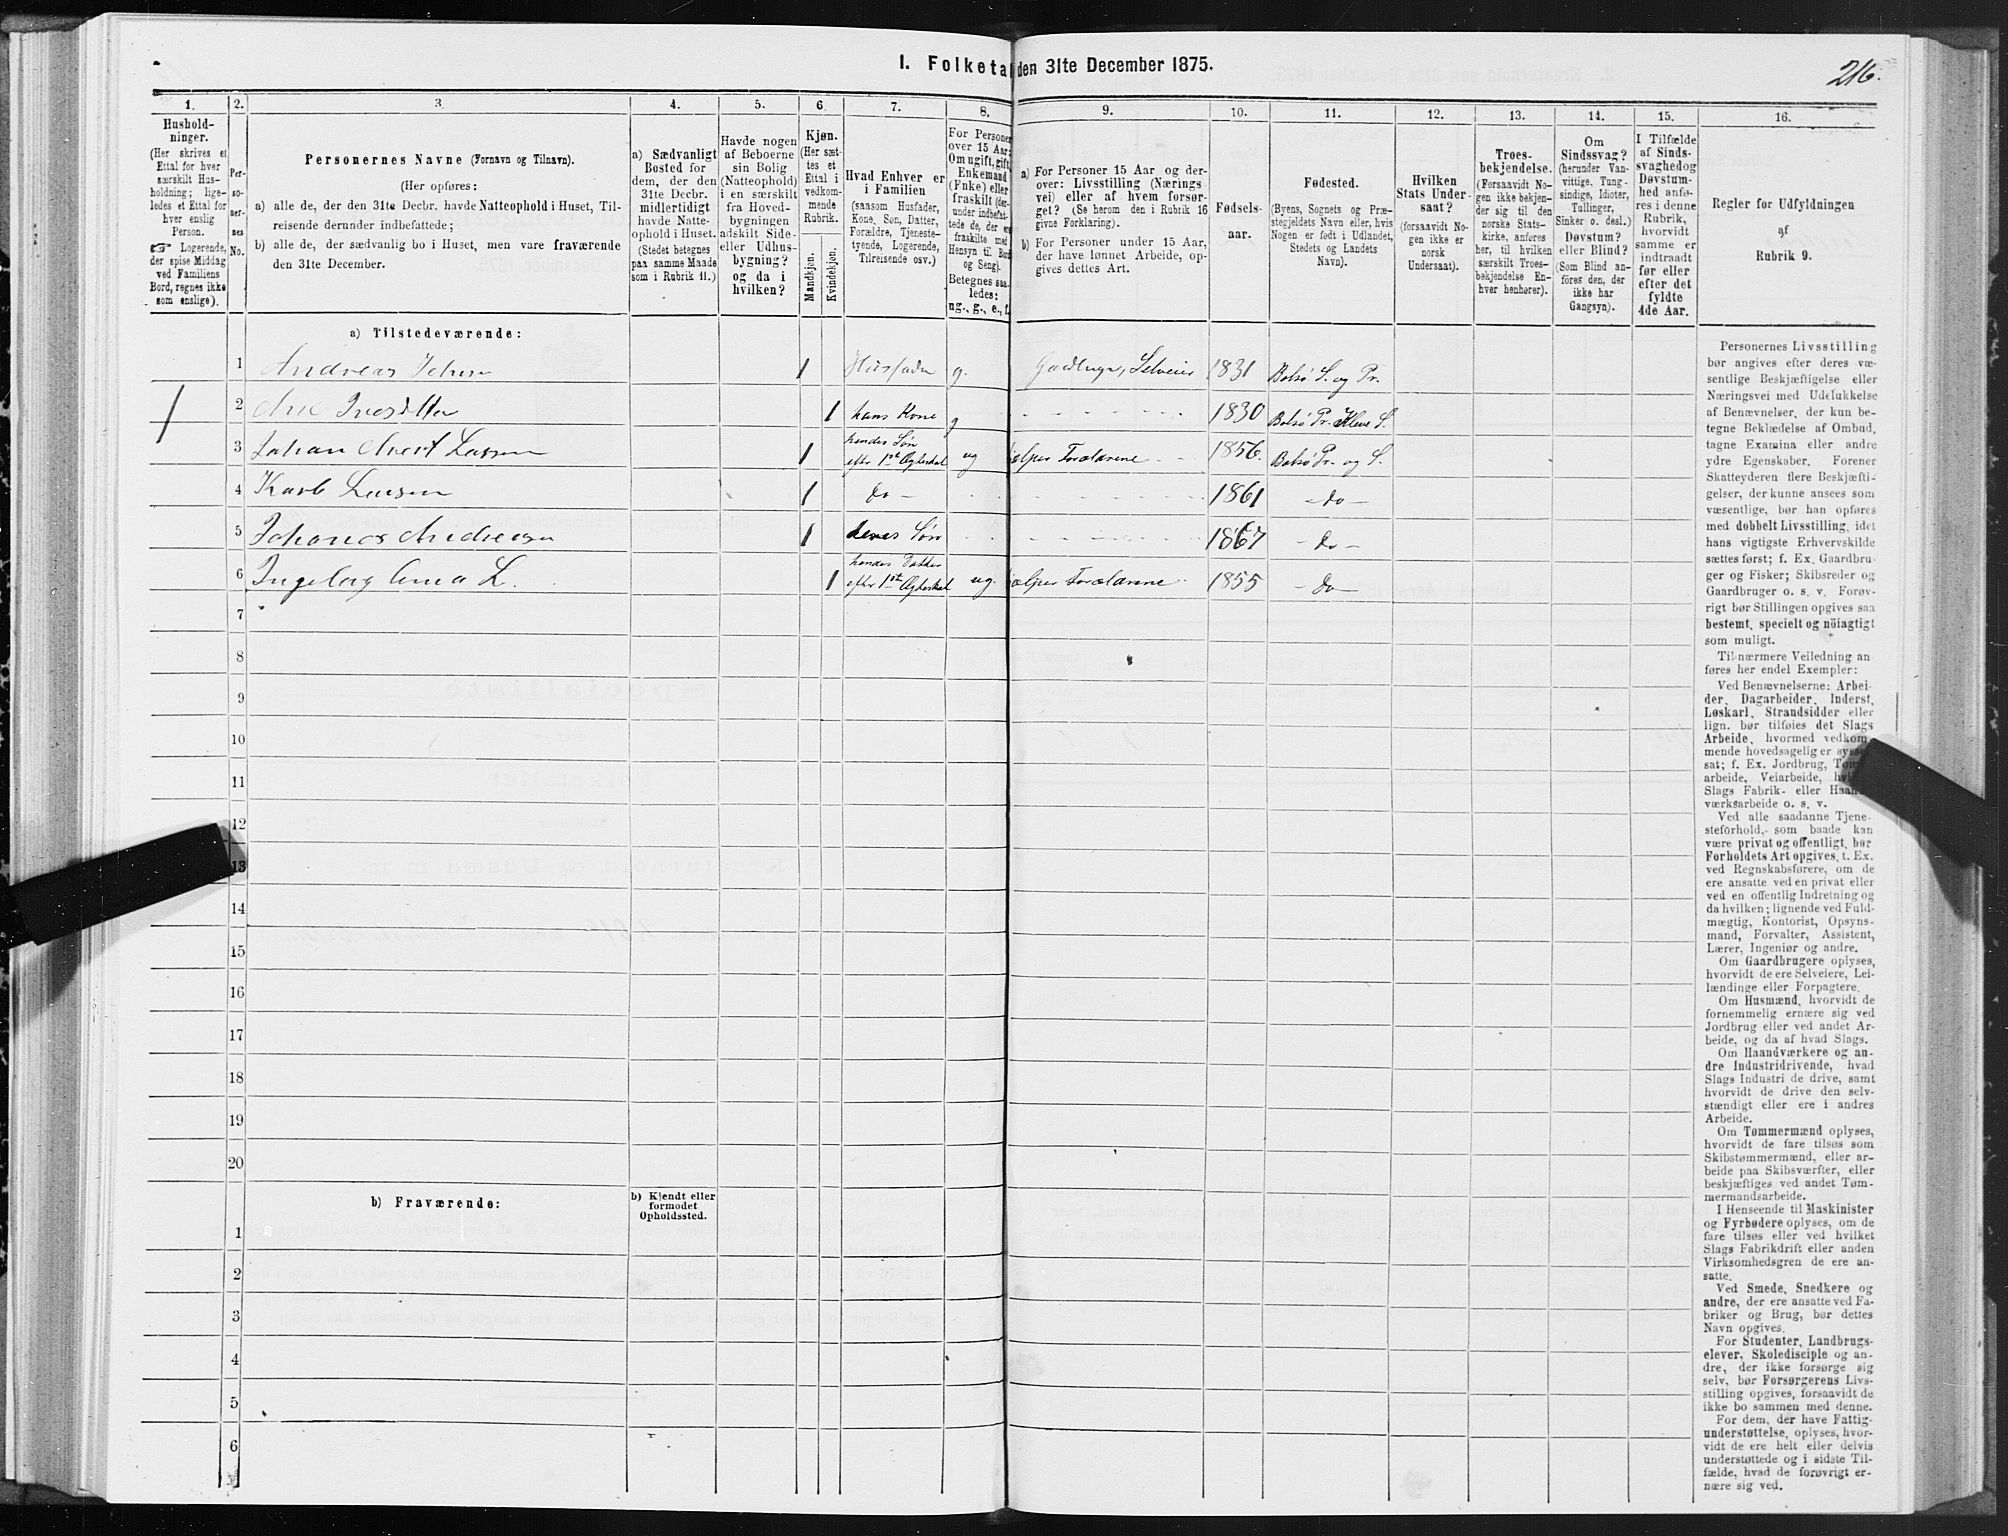 I. Folketal den 31te December 1875.
216.
1. 2. 3. 4. 5. 6. 7. 8. 9. 10. 11. 12. 13. 14. 15. 16.
Hushold-
ninger.
(Her skrives et
Ettal for hver
særskilt Hus-
holdning; lige-
ledes et Ettal for
hver enslig
Person.
☞ Logerende,
der spise Middag
ved Familiens
Bord, regnes ikke
som enslige).
Per-
so-
ner-
nes
No.
Personernes Navne (Fornavn og Tilnavn).
(Her opføres:
a) alle de, der den 31te Decbr. havde Natteophold i Huset, Til-
reisende derunder indbefattede;
b) alle de, der sædvanlig bo i Huset, men vare fraværende
den 31te December.
a) Sædvanligt
Bosted for
dem, der den
31te Decbr.
midlertidigt
havde Natte-
ophold i Huset.
(Stedet betegnes
paa samme Maade
som i Rubrik 11.)
Havde nogen
af Beboerne
sin Bolig
(Natteophold)
i en særskilt
fra Hoved-
bygningen
adskilt Side-
eller Udhus-
bygning?
og da i
hvilken?
Kjøn.
(Her sæt-
tes et
Ettal i
vedkom-
mende
Rubrik.
Mandkjøn.
Kvindekjøn.
Hvad Enhver er
i Familien
(saasom Husfader,
Kone, Søn, Datter,
Forældre, Tjeneste-
tyende, Logerende,
Tilreisende osv.)
For Personer
over 15 Aar:
Om ugift, gift,
Enkemand
(Enke) eller
fraskilt (der-
under indbefat-
tede de, der ere
fraskilte med
Hensyn til Bord
og Seng).
Betegnes saa-
ledes:
ug., g., e., f.
a) For Personer 15 Aar og der-
over: Livsstilling (Nærings-
vei) eller af hvem forsør-
get? (Se herom den i Rubrik 16
givne Forklaring).
b) For Personer under 15 Aar,
der have lønnet Arbeide, op-
gives dettes Art.
Fødsels-
aar.
Fødested.
(Byens, Sognets og Præ-
stegjeldets Navn eller, hvis
Nogen er født i Udlandet,
Stedets og Landets
Navn).
Hvilken
Stats Under-
saat?
(forsaavidt No-
gen ikke er
norsk
Undersaat).
Troes-
bekjendelse.
(Forsaavidt No-
gen ikke bekjen-
der sig til den
norske Stats-
kirke, anføres
her, til hvilken
særskilt Troes-
bekjendelse En-
hver henhører).
Om
Sindssvag?
(herunder Van-
vittige, Tung-
sindige, Idioter,
Tullinger,
Sinker o. desl.)
Døvstum?
eller Blind?
(Som Blind an-
føres den, der
ikke har
Gangsyn).
I Tilfælde
af Sinds-
svaghed og
Døvstum-
hed anfø-
res i denne
Rubrik,
hvorvidt
samme er
indtraadt
før eller
efter det
fyldte
4de Aar.
Regler for Udfyldningen
af
Rubrik 9.
a) Tilstedeværende:
1 Andreas Johnsen 1 Husfader g. Gaardbruger, Selveier 1831 Bolsø S. og Pr.
1 2 Ane Iversdtter 1 hans Kone g 1830 Bolsø Pr. Kleve S.
3 Johan Lassen 1 hendes Søn efter 1ste Ægteskab ug hjelper Forældrene 1856. Bolsø Pr. og S.
4 Karl Lassen 1 do 1861 do
5 Johanes Andreasen 1 deres Søn 1867 do
6 Ingeborg Anna L. 1 hendes Datter efter 1ste Ægteskab ug. hjelper Forældrene 1855 do
7
8
9
10
11
12
13
14
15
16
17
18
19
20
b) Fraværende:
b) Kjendt eller
formodet
Opholdssted.
1
2
3
4
5
6
Personernes Livsstilling
bør angives efter deres væ-
sentlige Beskjæftigelse eller
Næringsvei med Udelukkelse
af Benævnelser, der kun be-
tegne Beklædelse af Ombud,
tagne Examina eller andre
ydre Egenskaber. Forener
Skatteyderen flere Beskjæfti-
gelser, der kunne ansees som
væsentlige, bør han opføres
med dobbelt Livsstilling, idet
hans vigtigste Erhvervskilde
sættes først; f. Ex. Gaardbru-
ger og Fisker; Skibsreder og
Gaardbruger o. s. v. Forøv-
rigt bør Stillingen opgives saa
bestemt, specielt og nöiagtigt
som muligt.
Til nærmere Veiledning an-
føres her endel Exempler:
Ved Benævnelserne: Arbei-
der, Dagarbeider, Inderst,
Løskarl, Strandsidder eller
lign. bør tilføies det Slags
Arbeide, hvormed vedkom-
mende hovedsagelig er syssel-
sat; f. Ex. Jordbrug, Tomte-
arbeide, Veiarbeide, hvilket
Slags Fabrik- eller Haand-
værksarbeide o. s. v.
Ved alle saadanne Tjene-
steforhold, som baade kan
være privat og offentligt, bør
Forholdets Art opgives, t. Ex.
ved Regnskabsførere, om de
ere ansatte ved en privat eller
ved en offentlig Indretning og
da hvilken; lignende ved Fuld-
mægtig, Kontorist, Opsyns-
mand, Forvalter, Assistent,
Lærer, Ingeniør og andre.
Om Gaardbrugere oplyses,
hvorvidt de ere Selveiere, Lei-
lændinge eller Forpagtere.
Om Husmænd, hvorvidt de
fornemmelig ernære sig ved
Jordbrug eller ved andet Ar-
beide, og da af hvad Slags.
Om Haandværkere og an-
dre Industridrivende, hvad
Slags Industri de drive, samt
hvorvidt de drive den selv-
stændigt eller ere i andres
Arbeide.
Om Tømmermænd oplyses,
hvorvidt de fare tilsøs som
Skibstømmermænd, eller ar-
beide paa Skibsværfter, eller
beskjæftiges ved andet Tøm-
mermandsarbeide.
I Henseende til Maskinister
og Fyrbødere oplyses, om de
fare tilsøs eller ved hvilket
Slags Fabrikdrift eller anden
Virksomhedsgren de ere an-
satte.
Ved Smede, Snedkere og
andre, der ere ansatte ved Fa-
briker og Brug, bør dettes
Navn opgives.
For Studenter, Landbrugs-
elever, Skoledisciple og an-
dre, der ikke forsørge sig
selv, bør Forsørgerens Livs-
stilling opgives, forsaavidt de
ikke bo sammen med denne.
For dem, der have Fattig-
understøttelse, oplyses, hvor-
vidt de ere helt eller delvis
understøttede og i sidste Til-
fælde, hvad de forøvrigt er-
nære sig ved.